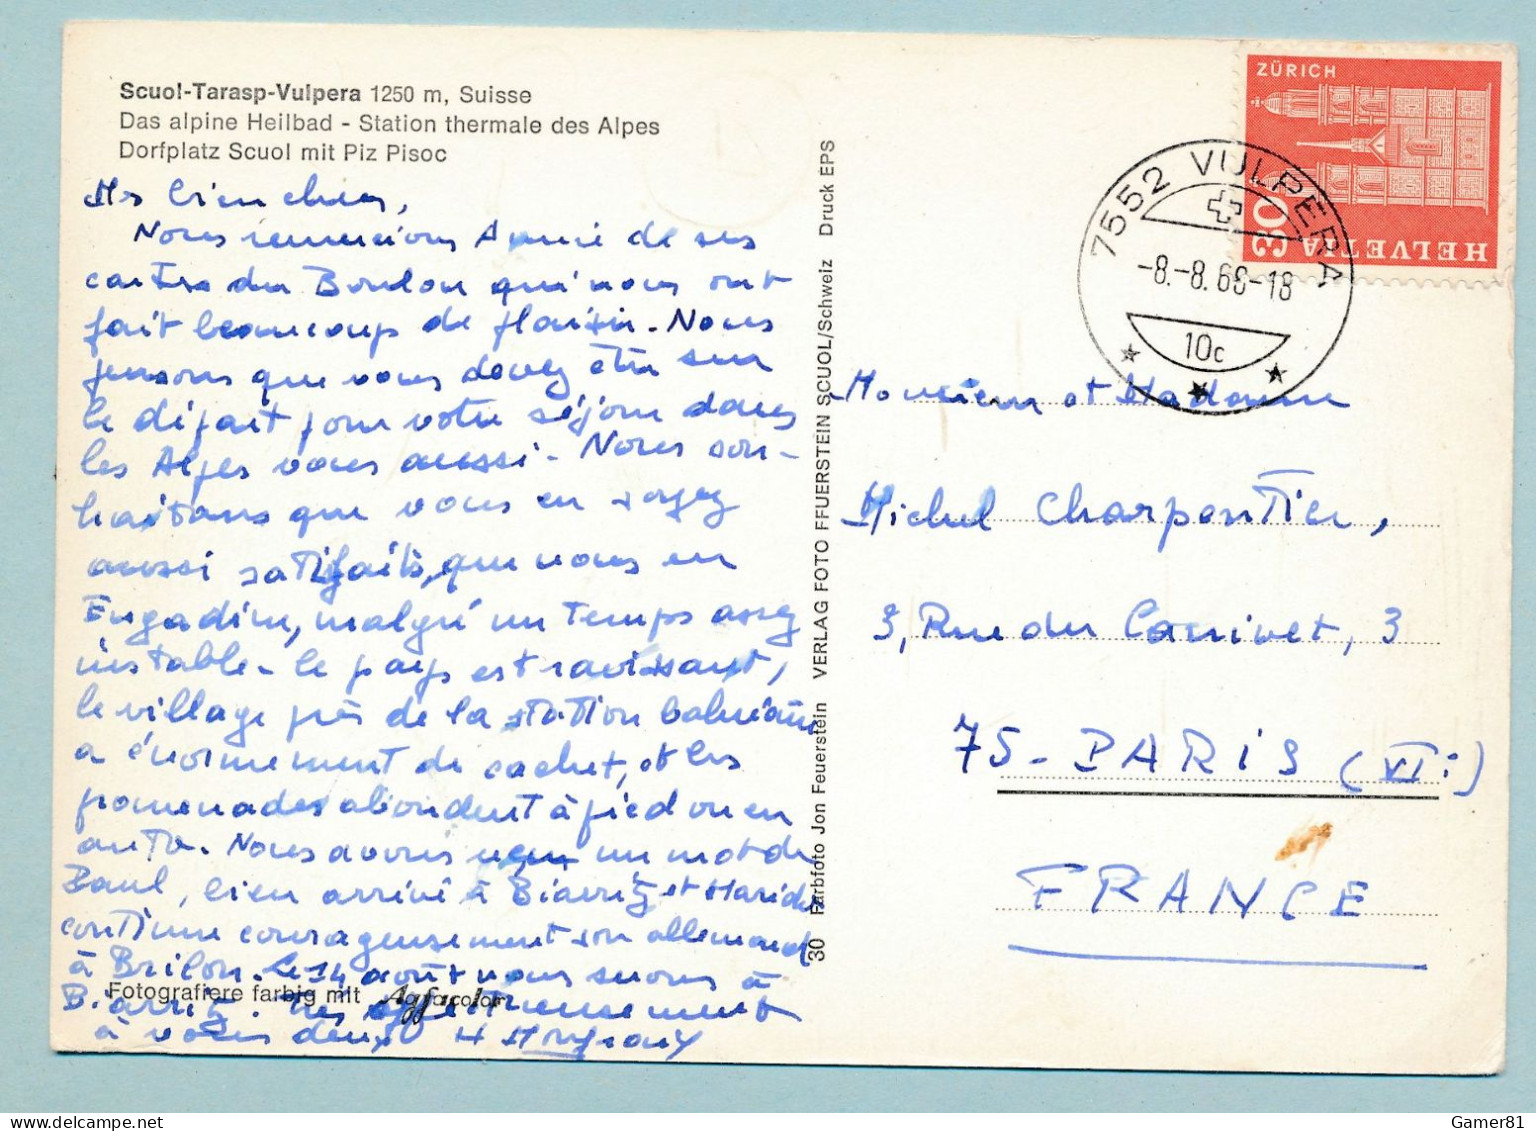 Scuol-Tarasp-Vulpera 1250 m, Suisse
Das alpine Heilbad - Station thermale des Alpes
Dorfplatz Scuol mit Piz Pisoc
Mes bien chers,
Nous remercions Annie de ses
cartes du Boulou qui nous ont
fait beaucoup de plaisir. Nous
pensons que vous devez être sur
le départ pour votre séjour dans
les Alpes vous aussi. Nous sou-
haitons que vous en soyez
aussi satisfaits, que nous en
Engadine, malgré un temps assez
instable. Le pays est ravissant,
le village près de la station balnéaire
a énormément de cachet, et les
promenades abondent à pied ou en
auto. Nous avons un mot de
Paul, bien arrivé à Biarritz et
continue courageusement son allemand
à Brilon. Le 14 août nous serons à
Biarritz. Très affectueusement
à vous deux
Fotografiere farbig mit Agfacolor
30 Farbfoto Jon Feuerstein VERLAG FOTO FFUERSTEIN SCUOL/Schweiz Druck EPS
ZÜRICH
30
HELVETIA
7552 VULPERA
-8.-8.68-18
10c
Monsieur et Madame
Michel Charpentier,
3, Rue du Canivet, 3
75 - PARIS (VIe)
FRANCE
Gamer81